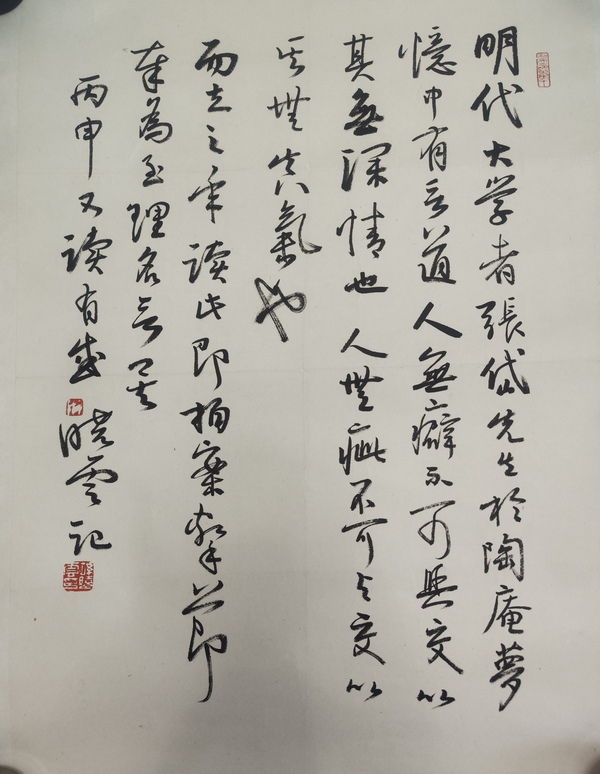 明代大学者張岱先生於陶庵夢
憶中有言道人無癖不可與交以
其無深情也人無疵不可与交以
其無真氣也
而立之年读此即拍案即
奉為至理名言矣
丙申又读有感晓雲記